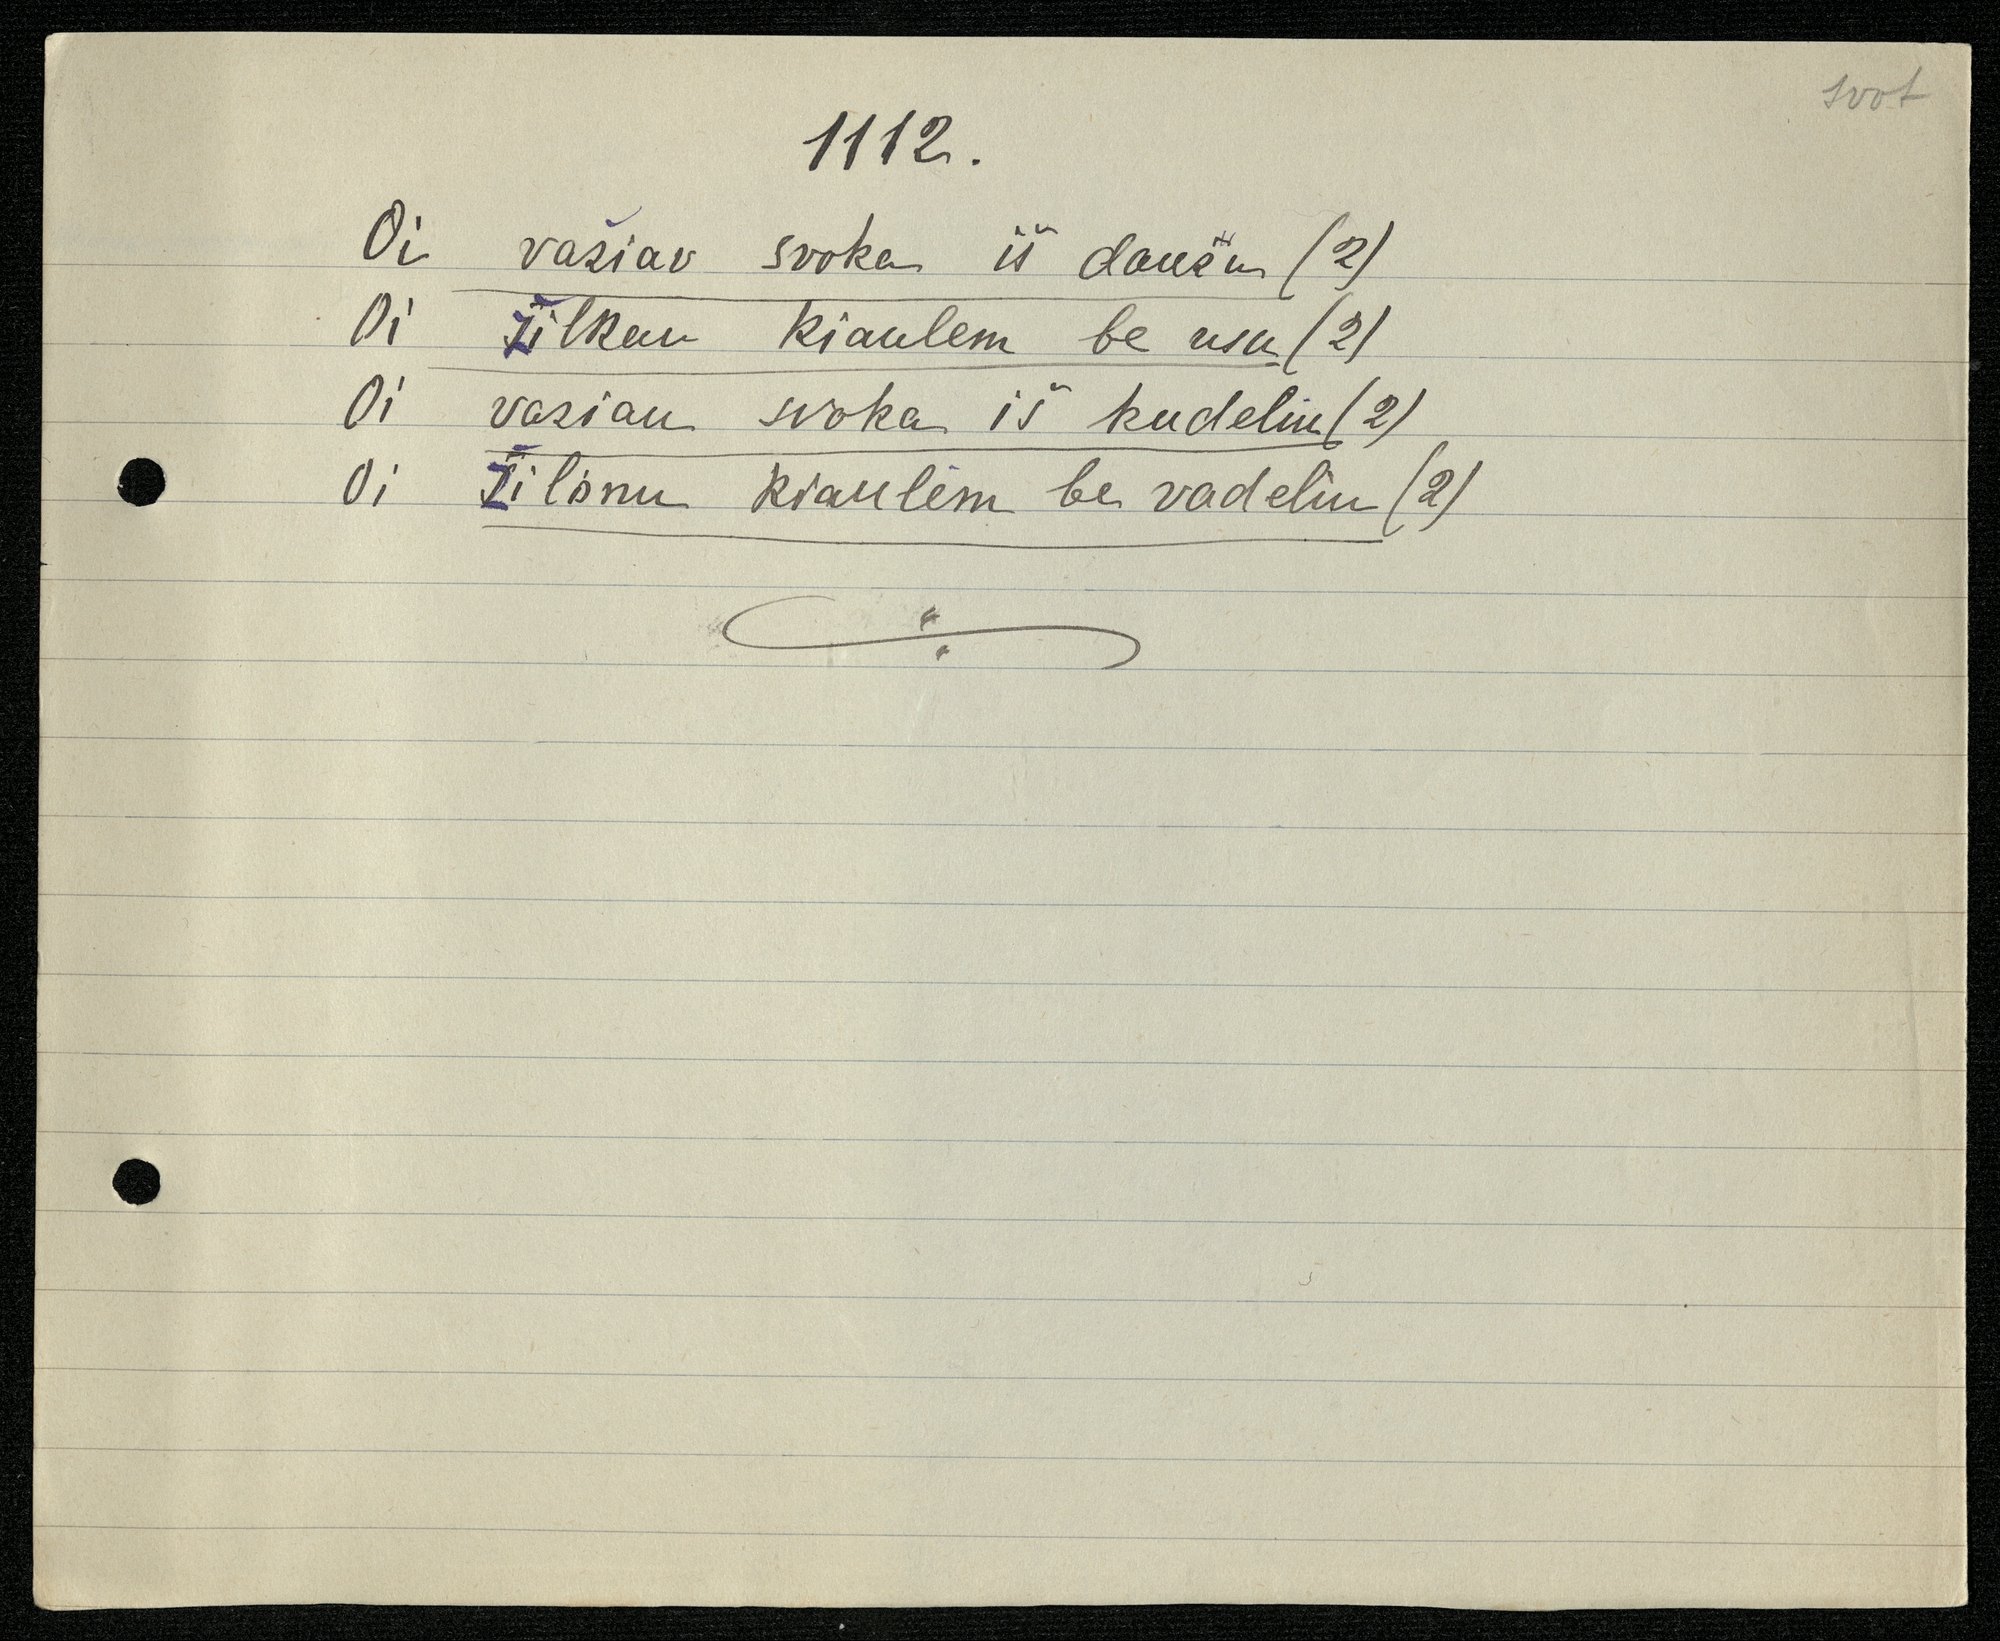 svot
1112.
Oi važiav svoka iš daušu (2)
Oi Žilkau kiaulem be usu (2)
Oi vaziau svoka iš kudeliu (2)
Oi Žilonu kiaulem be vadeliu (2)